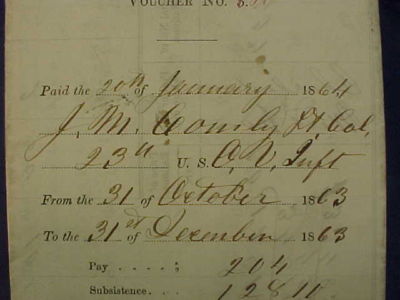 VOUCHER NO.
Paid the 20th of January 1864
J. M. Comly Lt. Col,
23rd U. S. O. V. Inft
From the 31 of October 1863
To the 31st of December 1863
Pay . . . . ; 204
Subsistence. . .